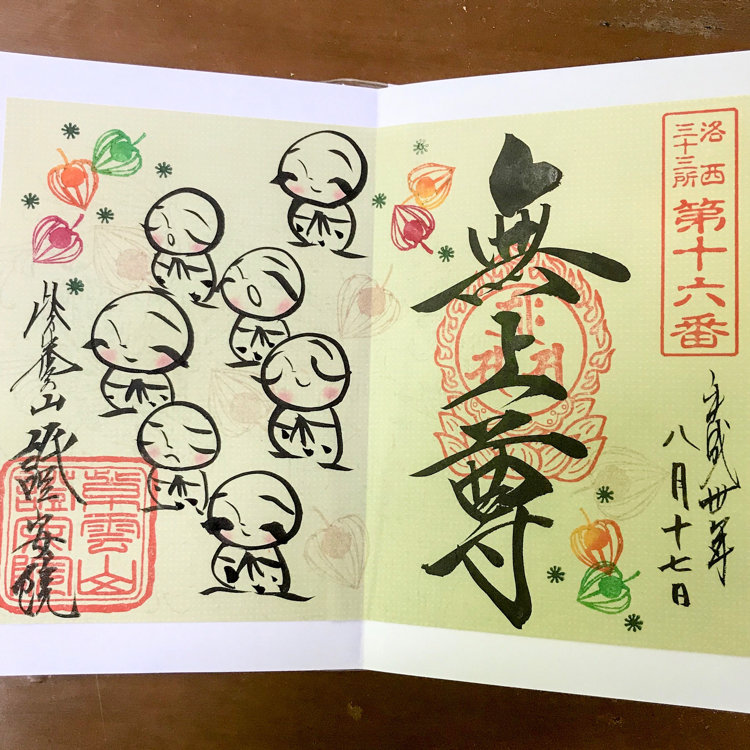 洛西
三十三所
第十六番
無上尊
平成卅年
八月十七日
山 安院
雲山